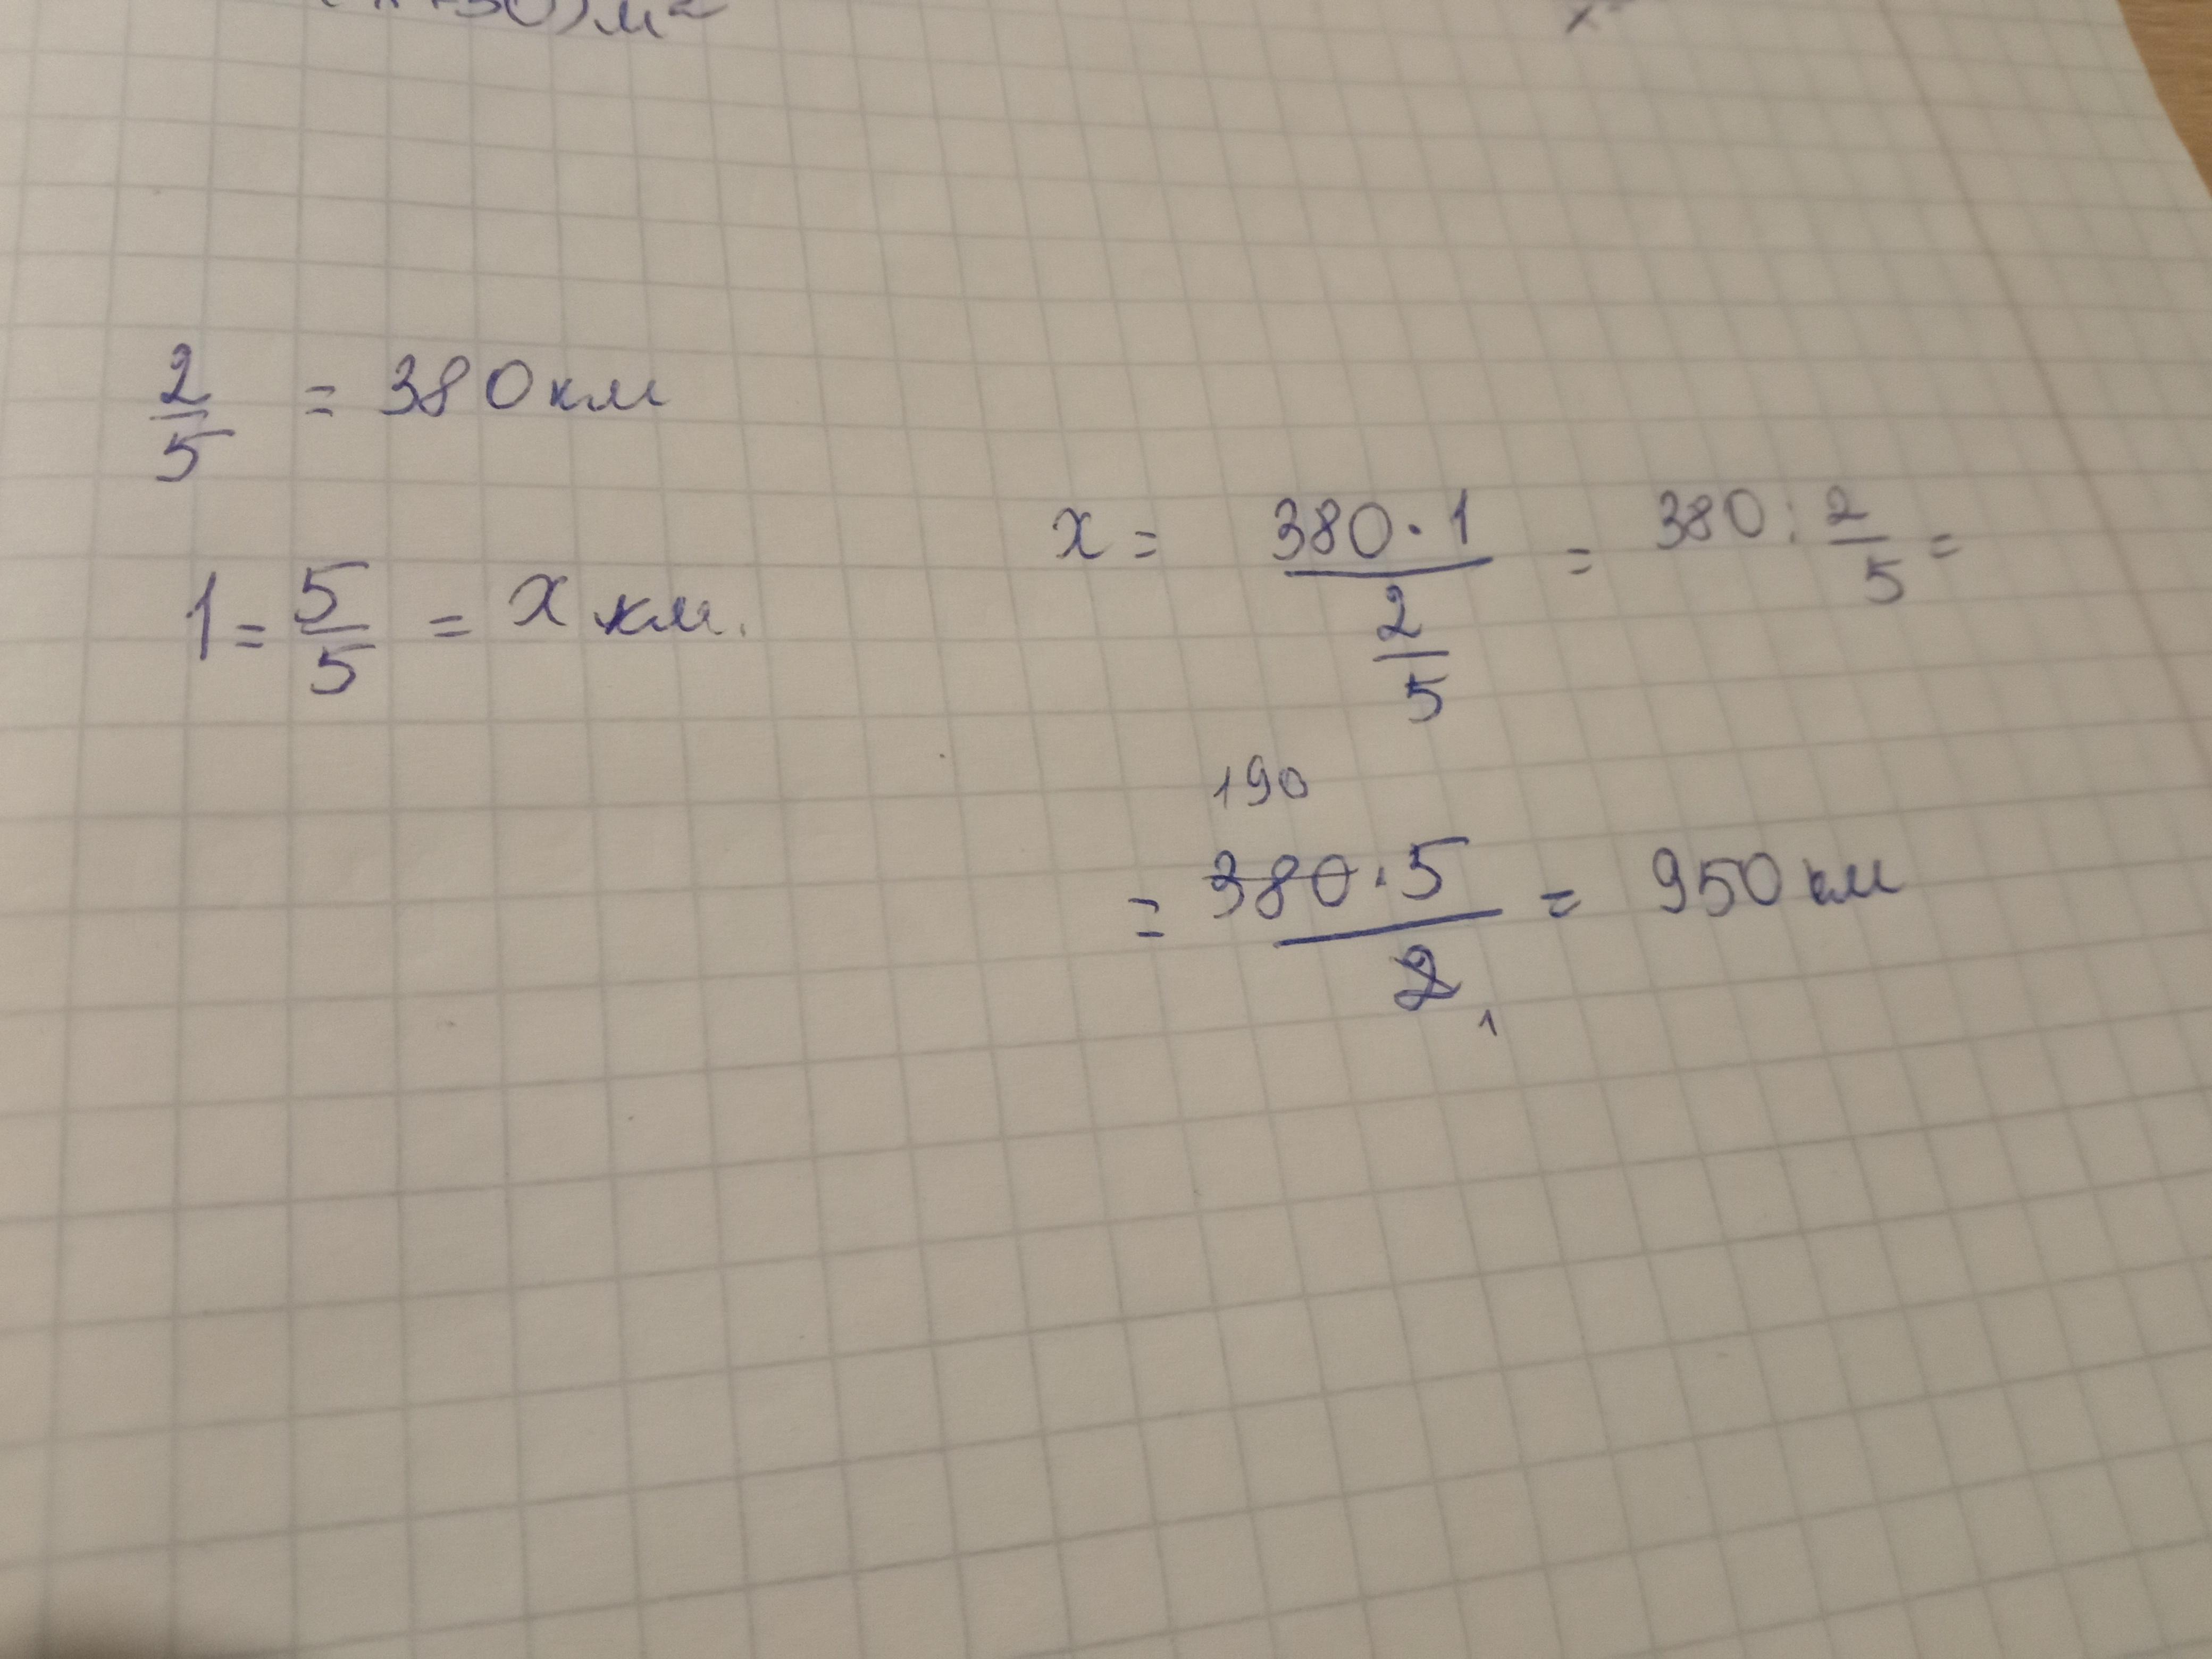 +30) м²
2/5 = 380 км
1 = 5/5 = x км.
x = (380 · 1)/(2/5) = 380 : 2/5 =
190
= (380 · 5)/2 = 950 км
1